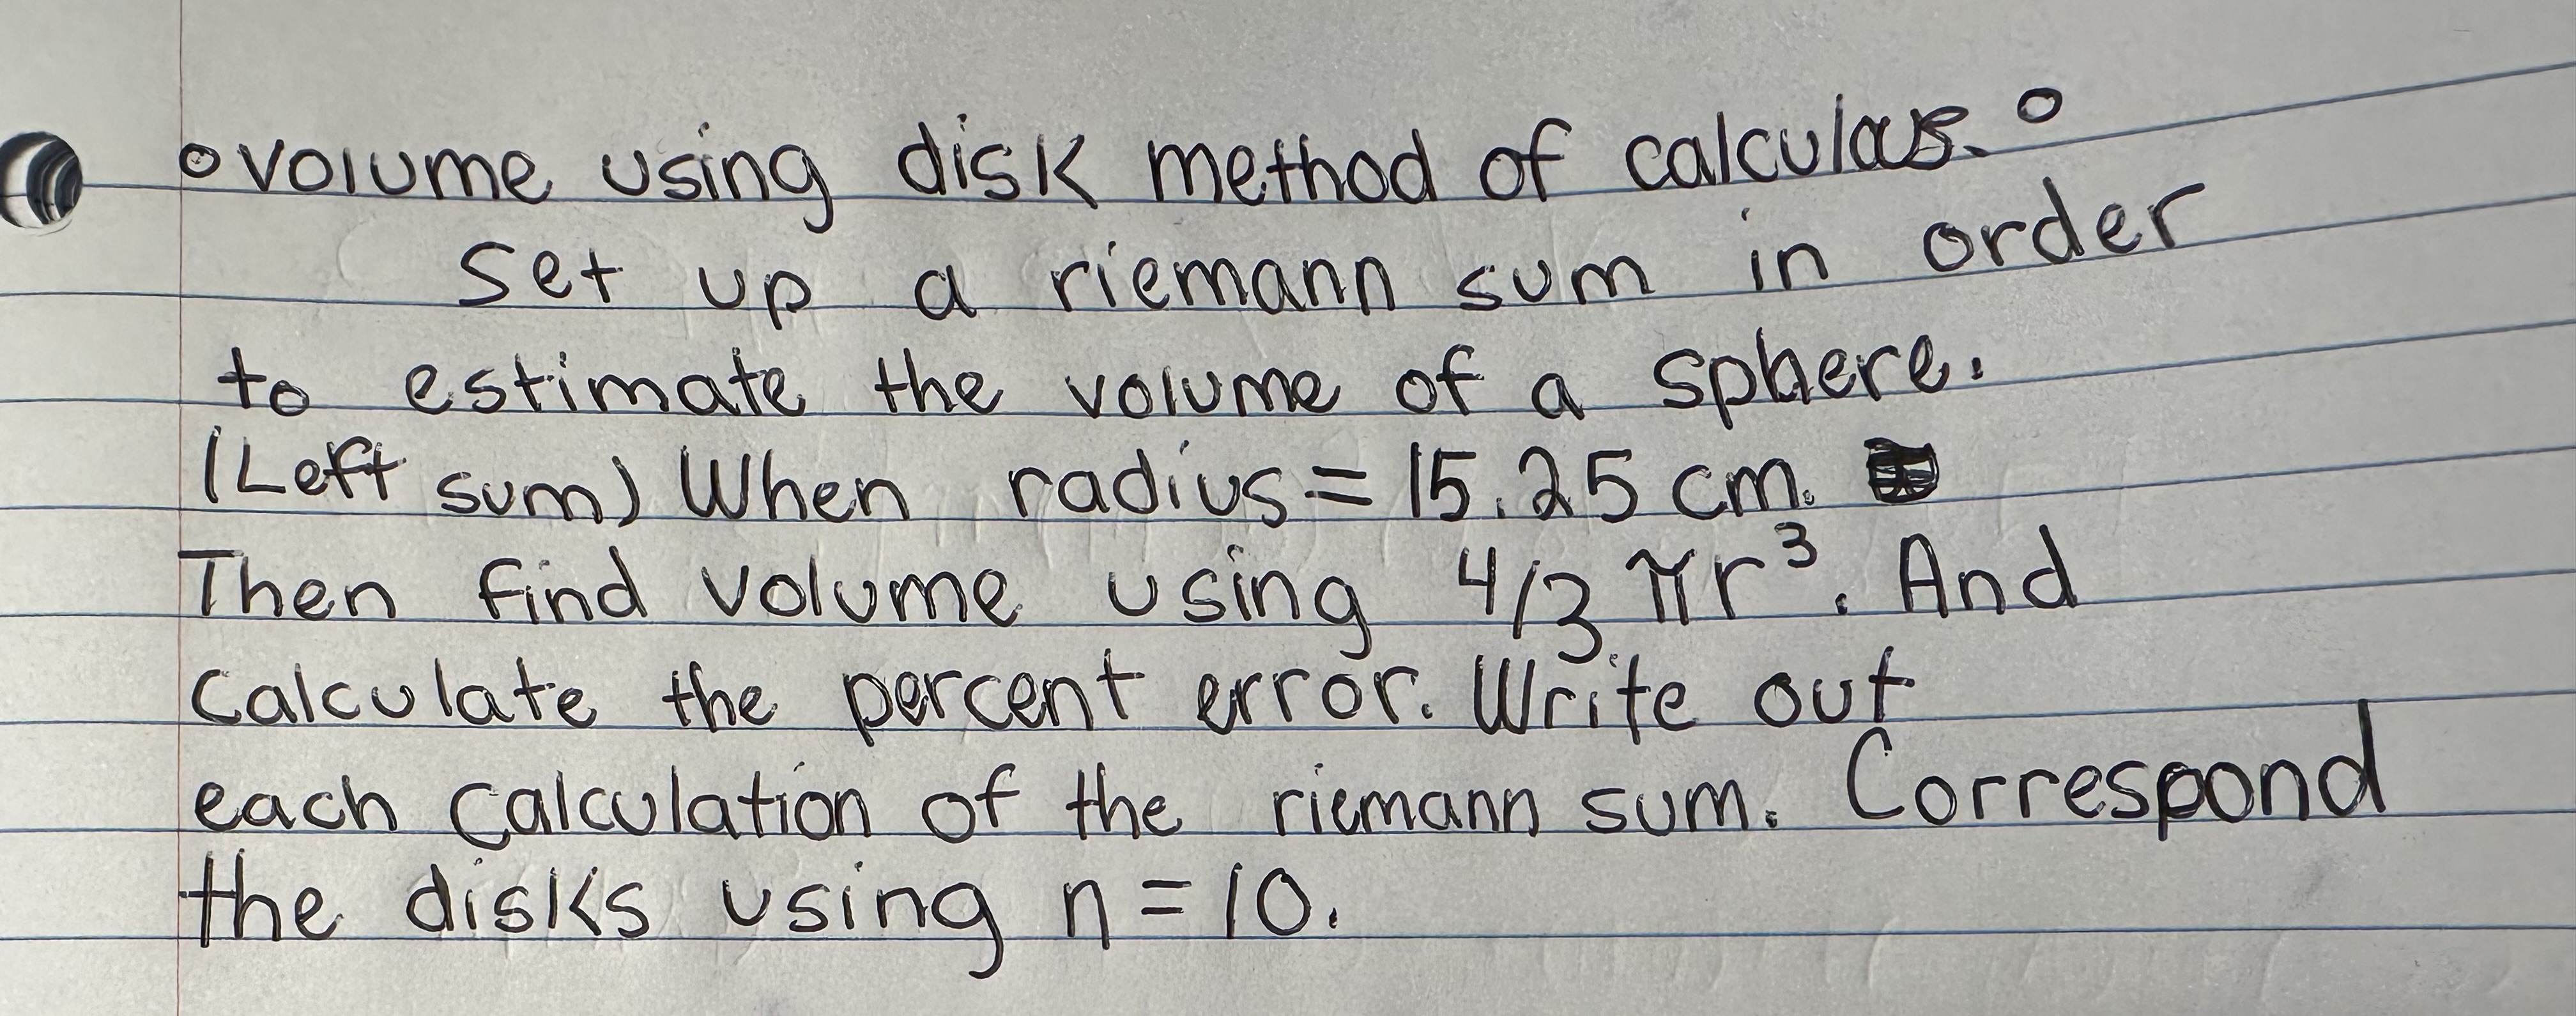 ° volume using disk method of calculus. °
Set up a riemann sum in order
to estimate the volume of a sphere.
(Left sum) When radius = 15.25 cm.
Then find volume using 4/3 πr³. And
calculate the percent error. Write out
each calculation of the riemann sum. Correspond
the disks using n = 10.